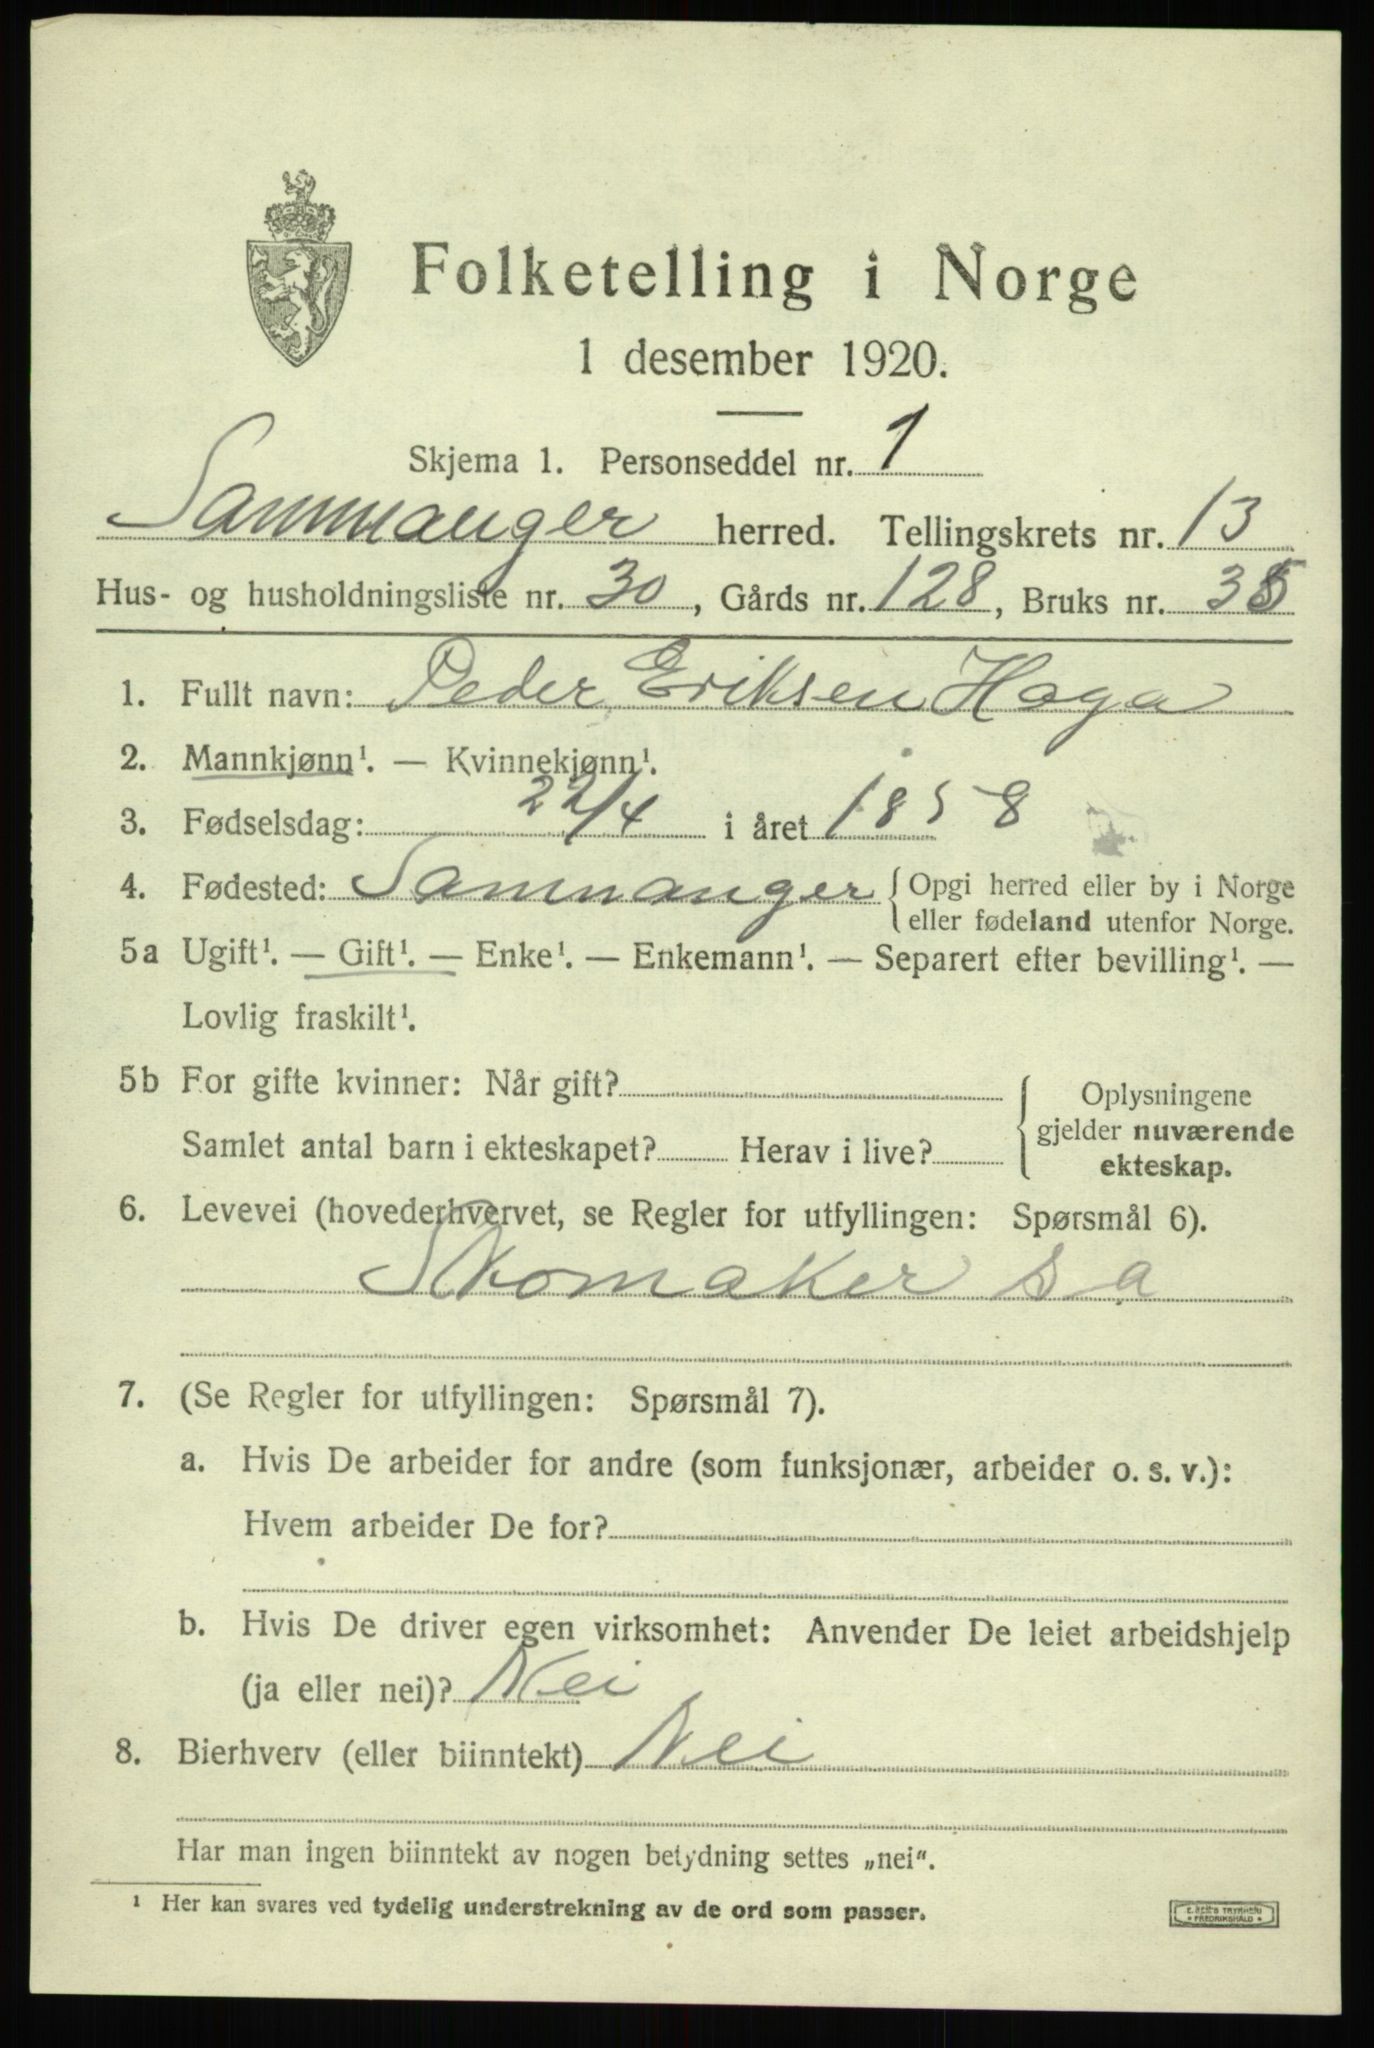 Folketelling i Norge
1 desember 1920.
Skjema 1. Personseddel nr. 1
Samnanger herred. Tellingskrets nr. 13
Hus- og husholdningsliste nr. 30, Gårds nr. 128, Bruks nr. 35
1. Fullt navn: Peder Eriksen Haga
2. Mannkjønn¹. — Kvinnekjønn¹.
3. Fødselsdag: 22/4 i året 1858
4. Fødested: Samnanger { Opgi herred eller by i Norge
eller fødeland utenfor Norge.
5a Ugift¹. — Gift¹. — Enke¹. — Enkemann¹. — Separert efter bevilling¹. —
Lovlig fraskilt¹.
5b For gifte kvinner: Når gift?
Samlet antal barn i ekteskapet? Herav i live?
Oplysningene
gjelder nuværende
ekteskap.
6. Levevei (hovederhvervet, se Regler for utfyllingen: Spørsmål 6).
Skomaker s a
7. (Se Regler for utfyllingen: Spørsmål 7).
a. Hvis De arbeider for andre (som funksjonær, arbeider o. s. v.):
Hvem arbeider De for?
b. Hvis De driver egen virksomhet: Anvender De leiet arbeidshjelp
(ja eller nei)? Nei
8. Bierhverv (eller biinntekt) Nei
Har man ingen biinntekt av nogen betydning settes „nei“.
¹ Her kan svares ved tydelig understrekning av de ord som passer.
FREDRIKSHALD